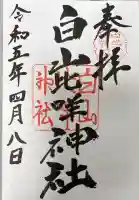 奉拝
白山比咩神社
白山
神社
令和五年四月八日